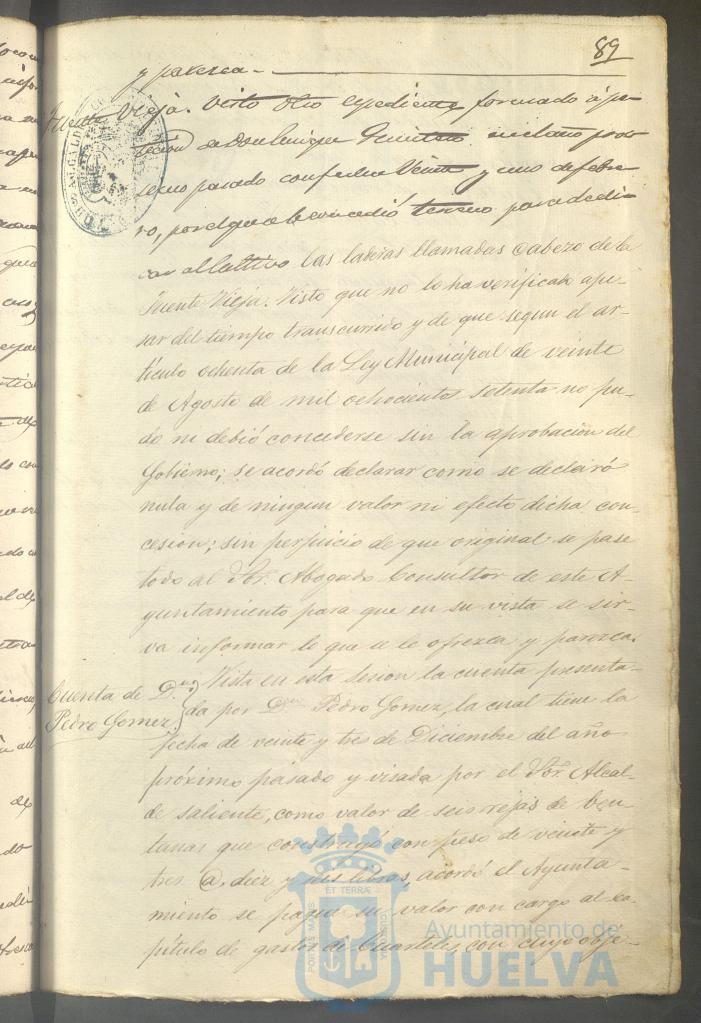 89
y parezca.
Fuente Vieja. Visto otro expediente, formado á pe-
ticion de Don Enrique en el año pro
secuo pasado con fecha veinte y uno de febre
ro, por el que se le concedió terreno para dedi-
car al cultivo las laderas llamadas Cabezo de la
Fuente Vieja. Visto que no lo ha verificado ape-
sar del tiempo transcurrido y de que segun el ar-
tículo ochenta de la Ley Municipal de veinte
de Agosto de mil ochocientos setenta no pu-
do ni debió concederse sin la aprobacion del
Gobierno; se acordó declarar como se declaró
nula y de ningun valor ni efecto dicha con-
cesion; sin perjuicio de que original se pase
todo al Sor. Abogado Consultor de este A-
yuntamiento para que en su vista se sir-
va informar lo que se le ofrezca y parezca.
Cuenta de Dn.
Pedro Gomez
Vista en esta sesion la cuenta presenta-
da por Dn. Pedro Gomez, la cual tiene la
fecha de veinte y tres de Diciembre del año
próximo pasado y visada por el Sor. Alcal-
de saliente, como valor de seis rejas de ben-
tanas que construyó con peso de veinte y
tres @. diez y seis libras, acordó el Ayunta-
miento se pague su valor con cargo al ca-
pítulo de gastos de Cuarteles, con cuyo obje-
PORTUS MARIS
ET TERRÆ
CUSTODIA
Ayuntamiento de
HUELVA